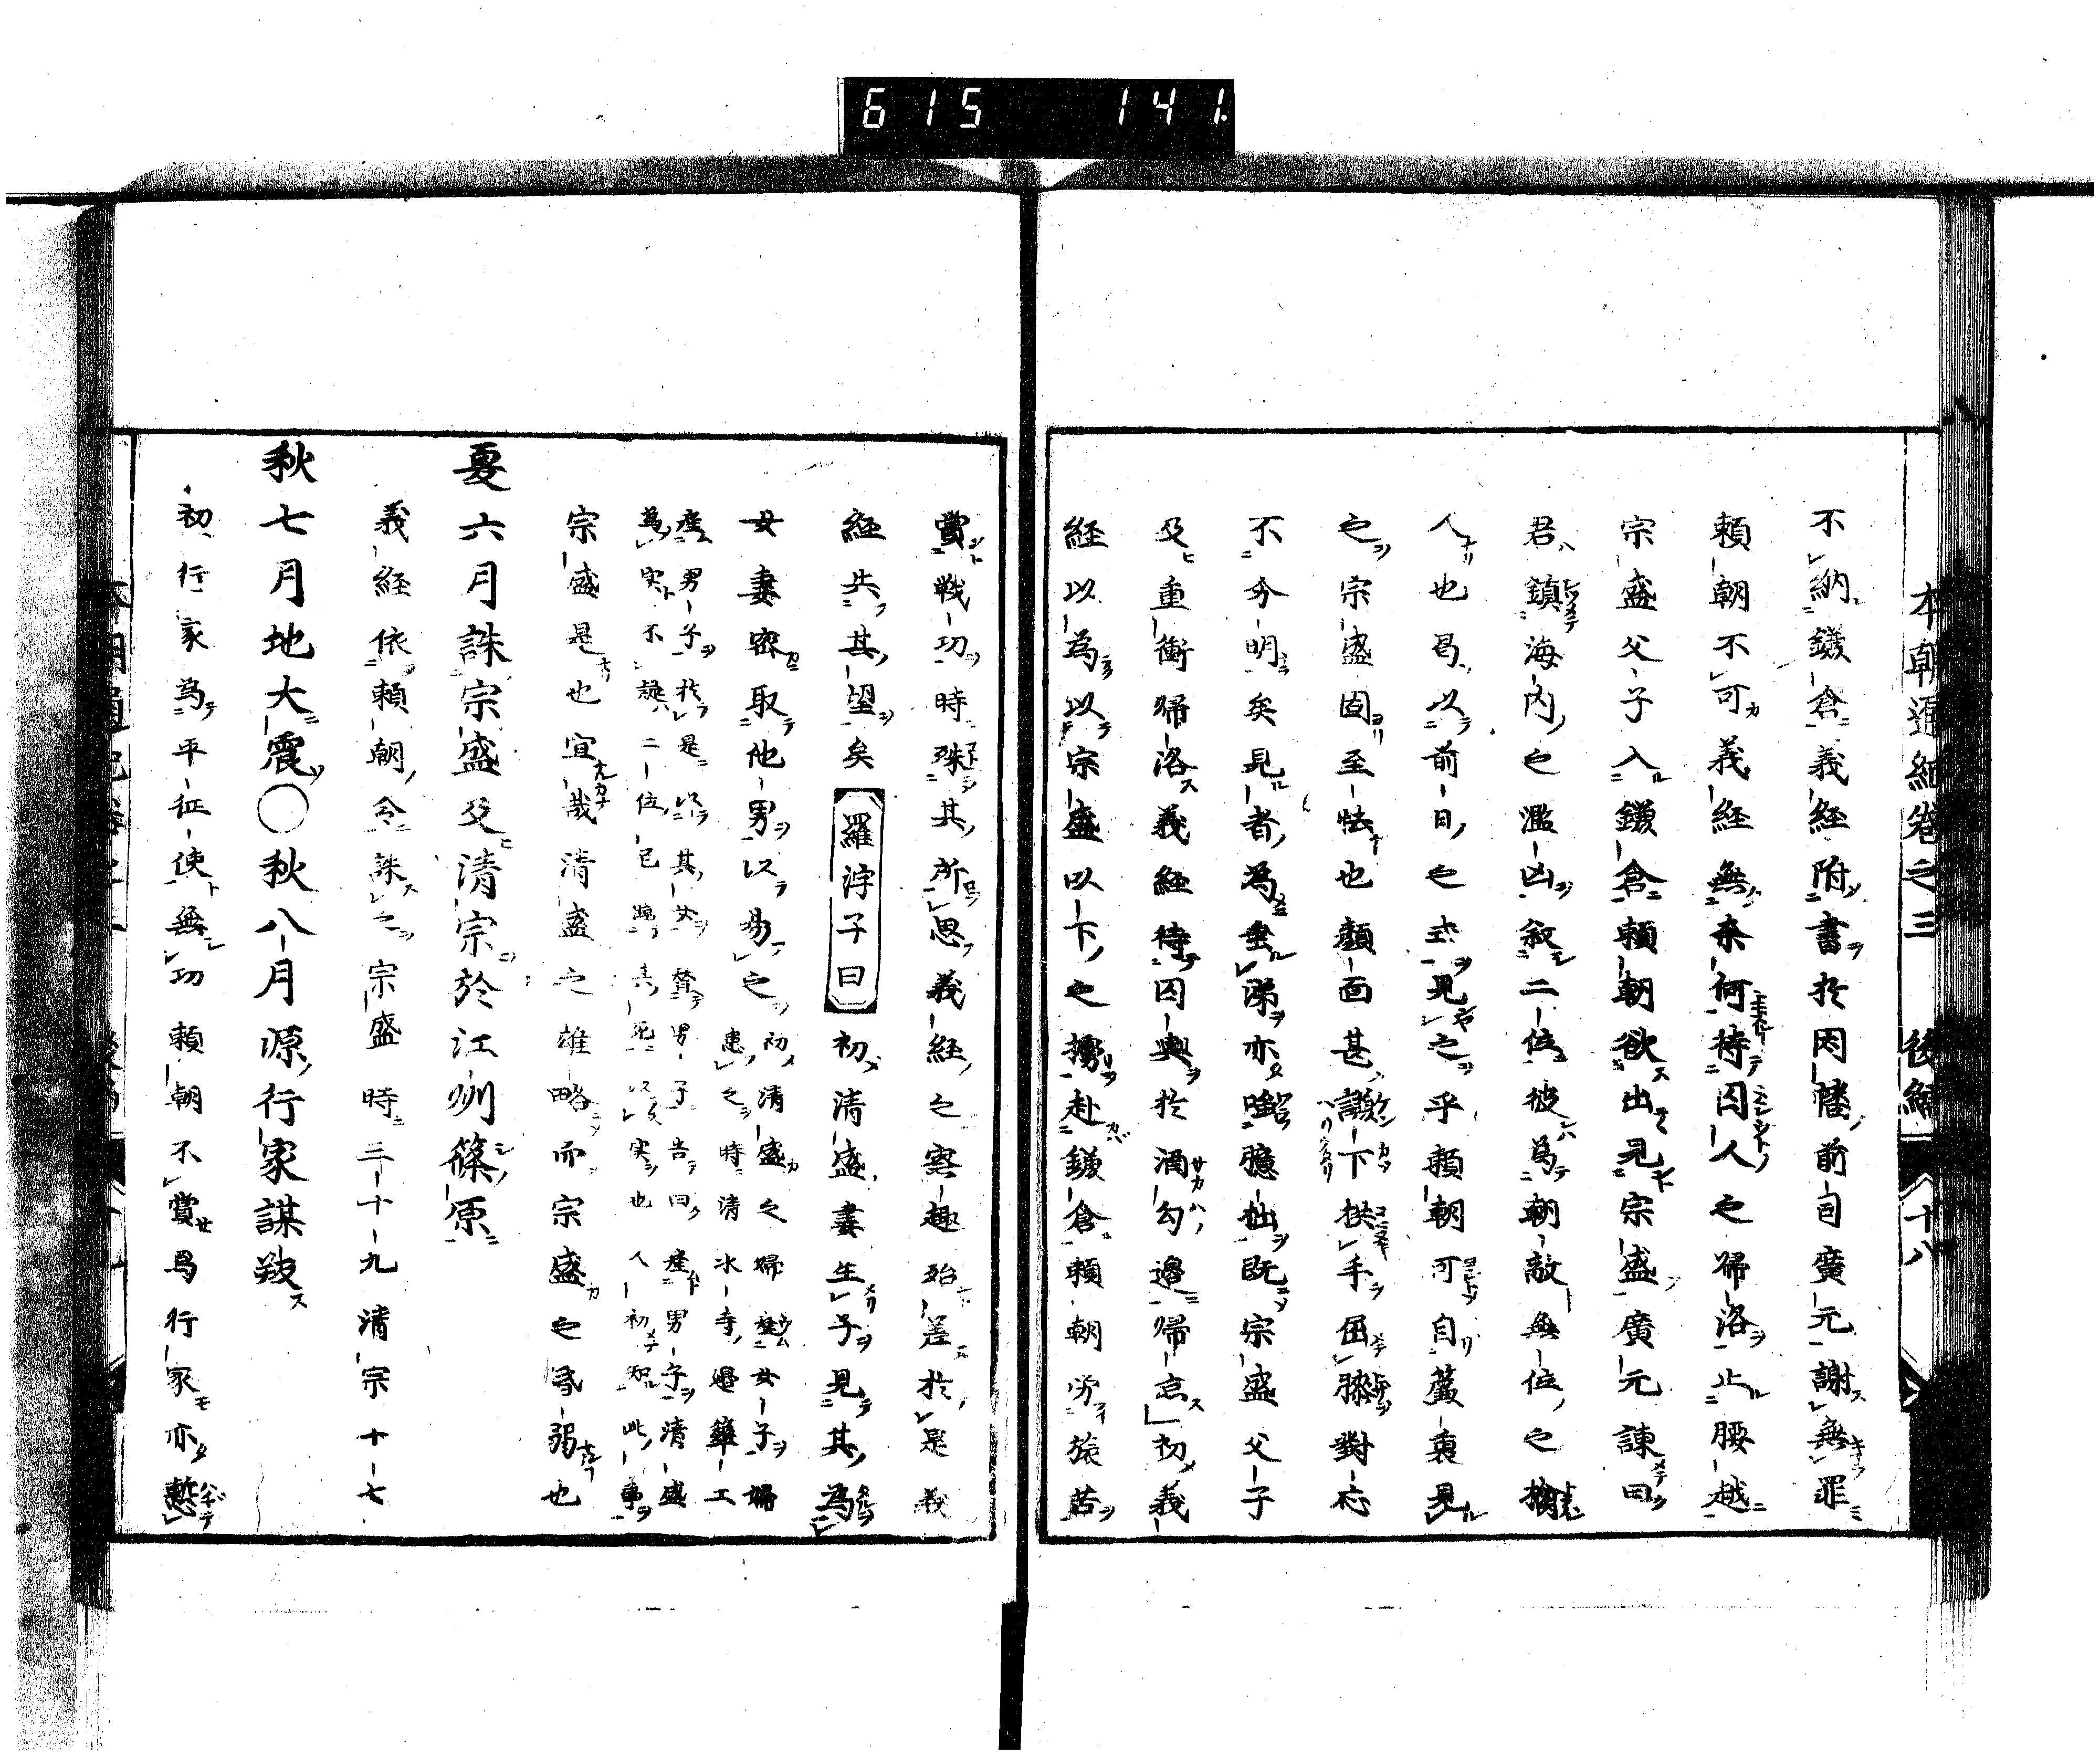 615 141
本朝通紀卷之三 後編 十八
不納鎌倉義経附書於因幡前司廣元謝無罪
頼朝不可義経無奈何待囚人之帰洛止腰越
宗盛父子入鎌倉頼朝欲出見宗盛廣元諌曰
君鎮海内之濫凶叙二位彼為朝敵無位之擒
人也曷以前日之式見之乎頼朝可自簾裏見
之宗盛固至怯也顔面甚謙下拱手屈膝對応
不分明矣見者為垂涕亦嗤臆拙既宗盛父子
及重衡帰洛義経待囚輿於酒匂邉帰京初義
経以為以宗盛以下之擄赴鎌倉頼朝労旅苦
賞戦功時殊其所思義経之察趣殆差於是義
経失其望矣羅浮子曰初清盛妻生子見其為
女妻密取他男以易之初清盛之婦産女子婦
患之時清水寺邉傘工
産男子於是以其女替男子告曰産男子清盛
為実不疑二位已臨其死以実也人初知此事
宗盛是也宜哉清盛之雄略而宗盛之孱弱也
夏六月誅宗盛及清宗於江州篠原
義経依頼朝令誅之宗盛時三十九清宗十七
秋七月地大震〇秋八月源行家謀叛
初行家為平征使無功頼朝不賞焉行家亦慙